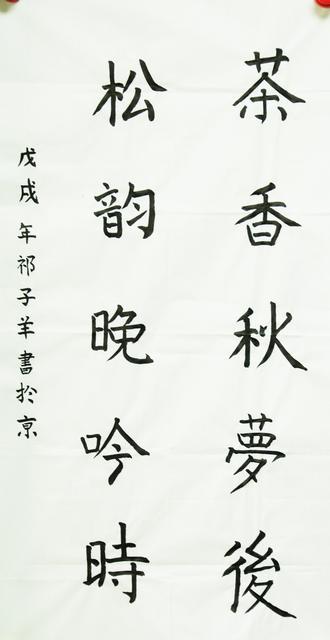 茶香秋夢後
松韵晚吟時
戊戌年祁子羊書於京